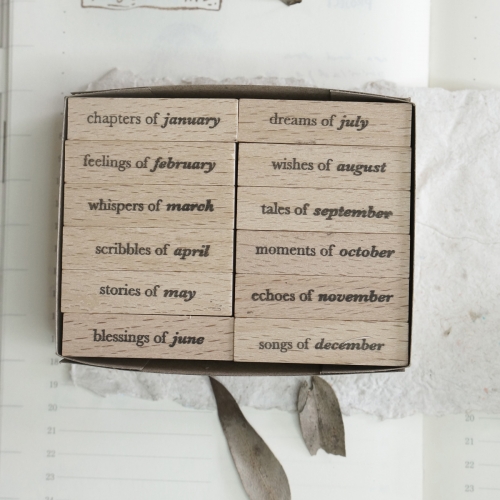 chapters of january
feelings of february
whispers of march
scribbles of april
stories of may
blessings of june
dreams of july
wishes of august
tales of september
moments of october
echoes of november
songs of december
19
20
21
22
23
20
21